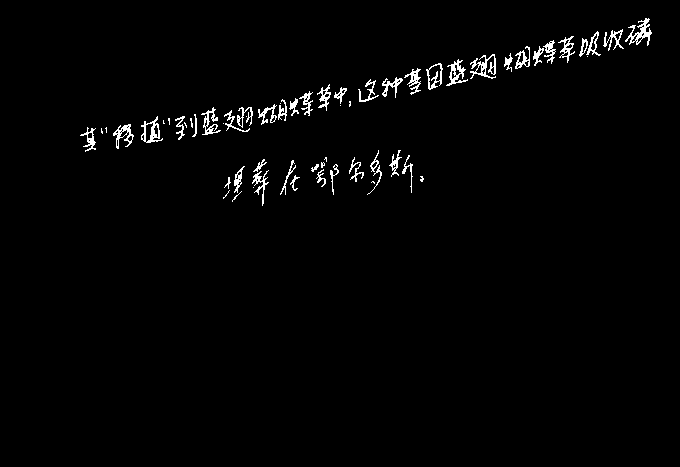 其“移植”到蓝翅蝴蝶草中,这种基因蓝翅蝴蝶草吸收磷
埋葬在鄂尔多斯。